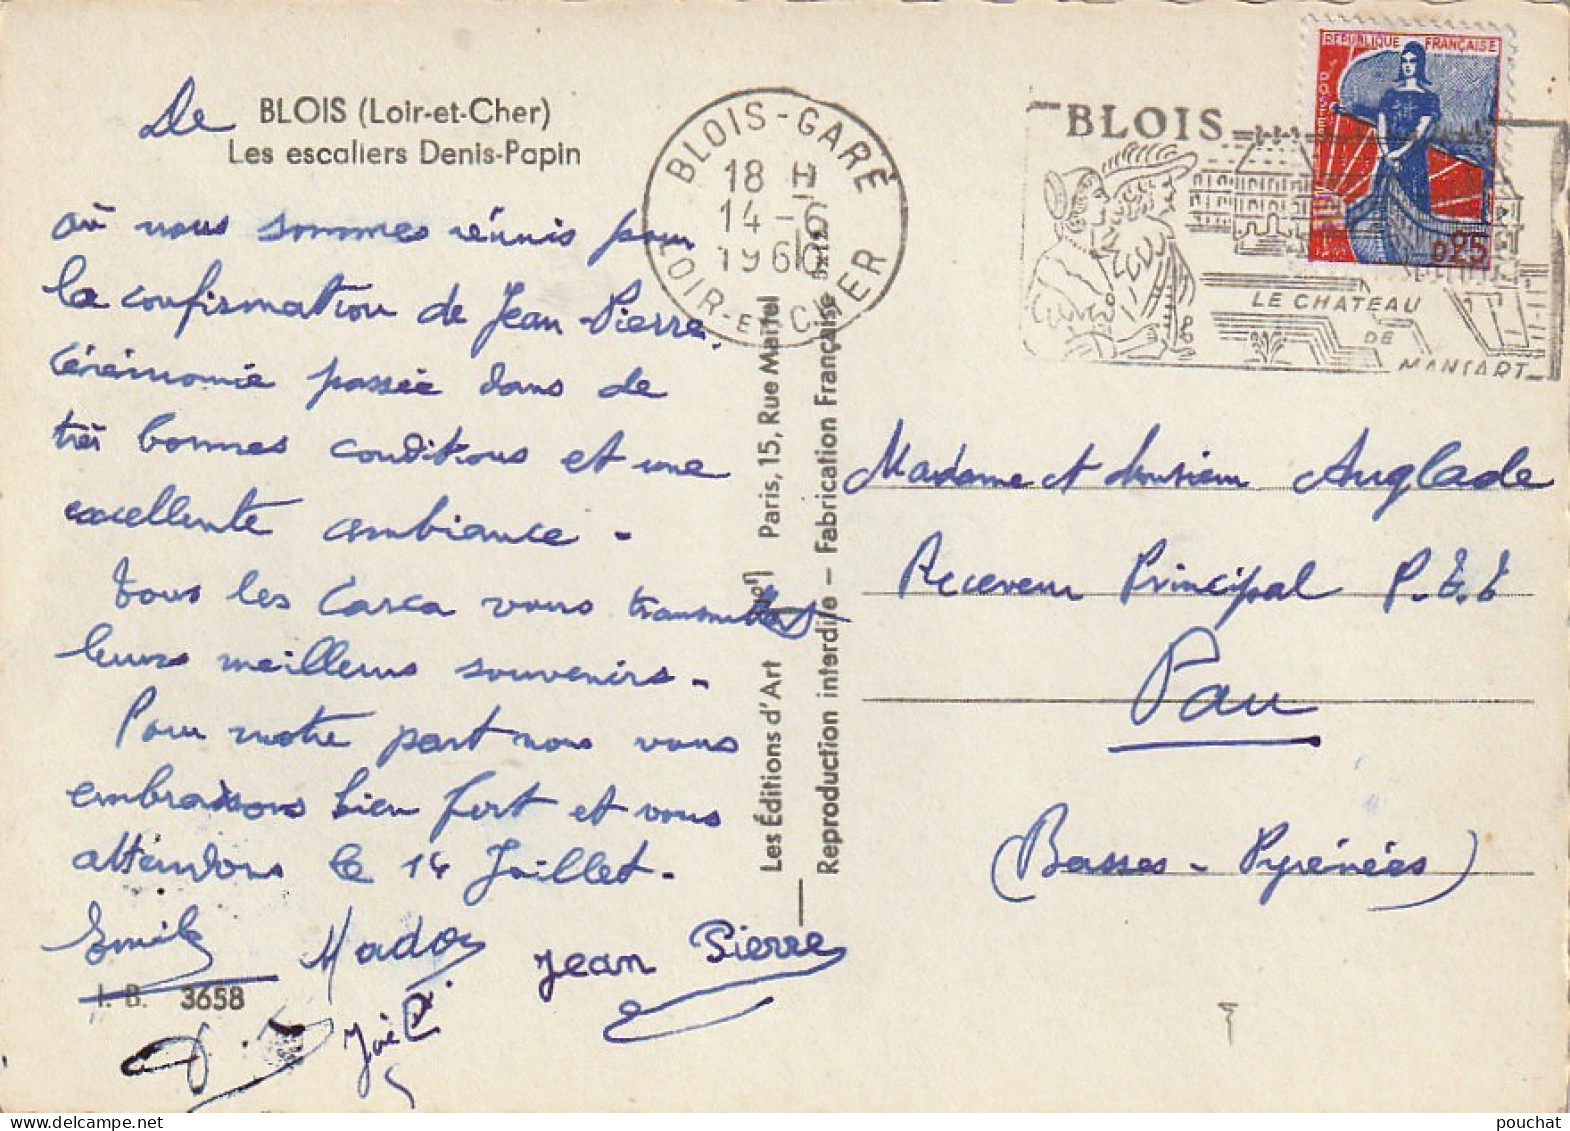 De BLOIS (Loir-et-Cher)
Les escaliers Denis-Papin
où nous sommes réunis pour
la confirmation de Jean-Pierre.
Cérémonie passée dans de
très bonnes conditions et une
excellente ambiance -
Tous les Carca vous transmettent
leurs meilleurs souvenirs -
Pour notre part nous vous
embrassons bien fort et vous
attendons le 14 Juillet -
Emile Mado Jean Pierre
I. B. 3658
Joë
Les Éditions d'Art Paris, 15, Rue Martel
Reproduction interdite — Fabrication Française
BLOIS-GARE
18 H
14-6
1960
LOIR-ET-CHER
BLOIS
LE CHATEAU
DE
MANSART
REPUBLIQUE FRANÇAISE
POSTES
0,25
Madame et Monsieur Anglade
Receveur Principal P.T.T
Pau
(Basses-Pyrénées)
pouchat